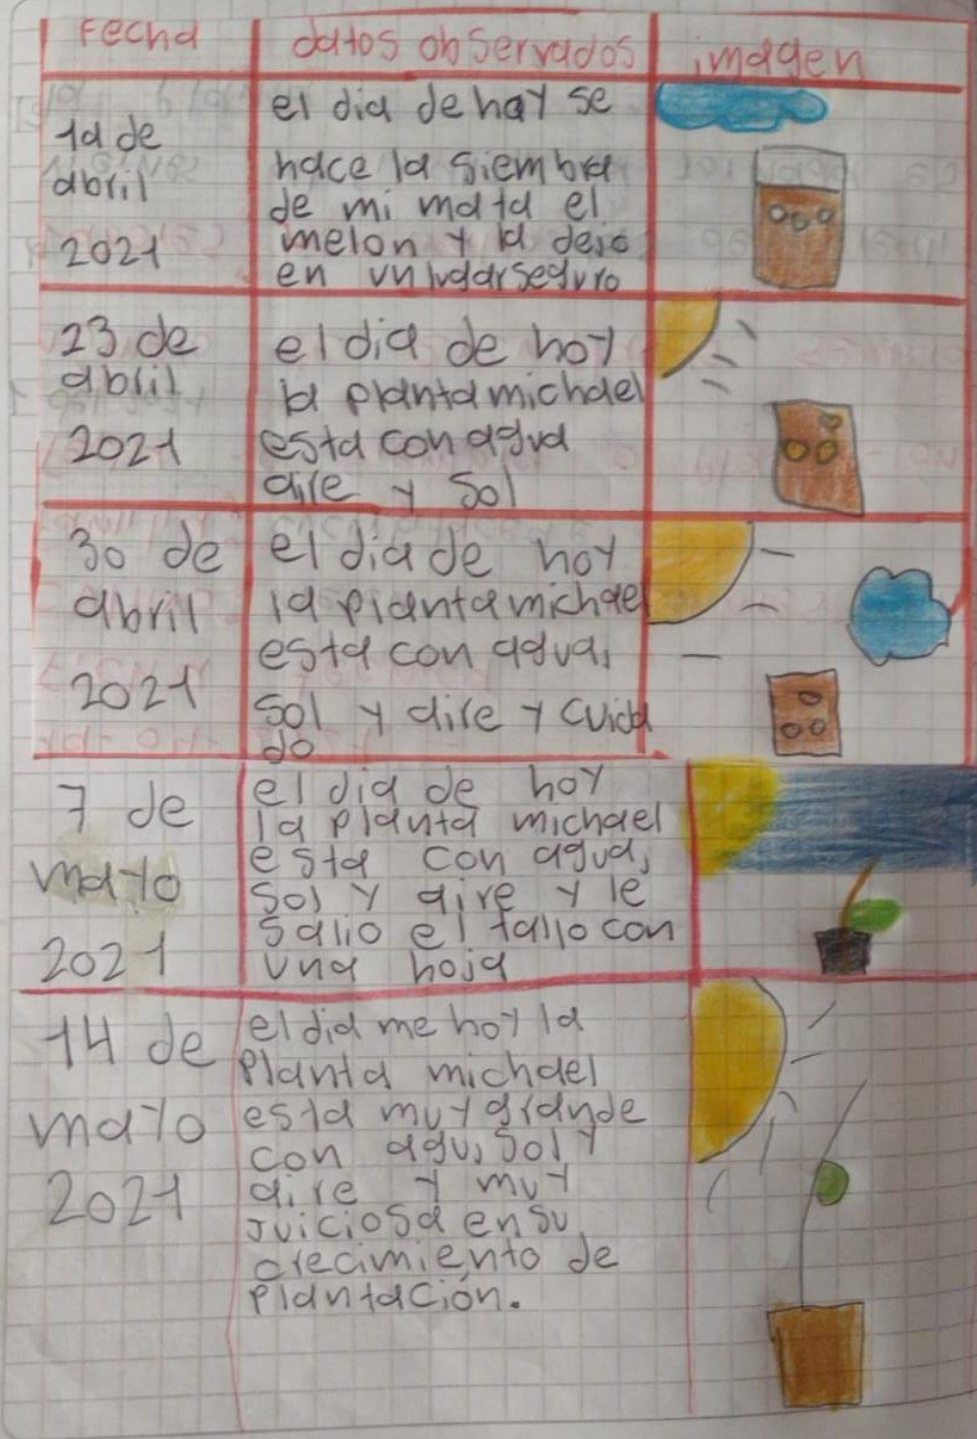 Fecha
datos observados
imagen
1a de
abril
2021
el dia de hay se
hace la siembra
de mi mata el
melon y la dejo
en un lugar seguro
23 de
abril
2021
el dia de hoy
la planta michael
esta con agua
aire y sol
30 de
abril
2021
el dia de hoy
la planta michael
esta con agua,
sol y aire y cuida
do
7 de
mayo
2021
el dia de hoy
la planta michael
esta con agua,
sol y aire y le
salio el tallo con
una hoja
14 de
mayo
2021
el dia me hoy la
planta michael
esta muy grande
con agu, sol y
aire y muy
juiciosa en su
crecimiento de
plantación.